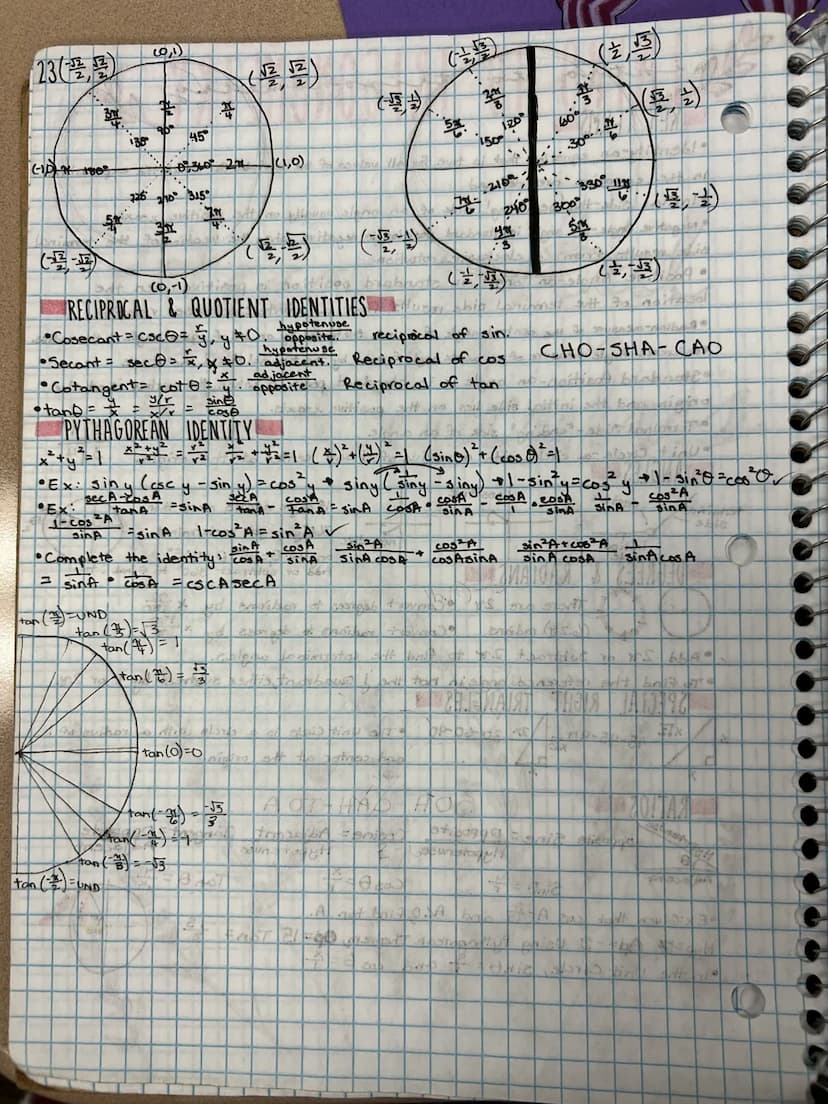 23
(-√2/2, √2/2)
(0,1)
(√2/2, √2/2)
3π/4
π/2
π/4
135°
90°
45°
(-1,0) π 180° 0°,360° 2π (1,0)
225 270° 315°
5π/4
3π/2
7π/4
(-√2/2, -√2/2)
(√2/2, -√2/2)
(0,-1)
(-1/2, √3/2)
(1/2, √3/2)
(-√3/2, 1/2)
(√3/2, 1/2)
2π/3
π/3
5π/6
π/6
150° 120° 60° 30°
210° 240° 300° 330°
7π/6
11π/6
4π/3
5π/3
(-√3/2, -1/2)
(√3/2, -1/2)
(-1/2, -√3/2)
(1/2, -√3/2)
RECIPROCAL & QUOTIENT IDENTITIES
• Cosecant = cscθ = r/y, y≠0. hypotenuse/opposite. reciprocal of sin.
• Secant = secθ = r/x, x≠0. hypotenuse/adjacent. Reciprocal of cos
CHO-SHA-CAO
• Cotangent = cotθ = x/y. adjacent/opposite. Reciprocal of tan
• tanθ = y/x = y/r / x/r = sinθ/cosθ
PYTHAGOREAN IDENTITY
x²+y²=1 x²+y²/r² = r²/r² x²/r² + y²/r² = 1 (x/r)²+(y/r)²=1 (sinθ)²+(cosθ)²=1
• Ex: sin y (csc y - sin y) = cos² y → sin y (1/sin y - sin y) → 1-sin² y = cos² y → 1-sin²θ = cos²θ ✓
• Ex: secA-cosA/tanA = sinA secA/tanA - cosA/tanA = sinA 1/cosA · cosA/sinA - cosA/1 · cosA/sinA 1/sinA - cos²A/sinA
1-cos²A/sinA = sinA 1-cos²A = sin²A ✓
• Complete the identity: sinA/cosA + cosA/sinA sin²A/sinA cosA + cos²A/cosA sinA sin²A+cos²A/sinA cosA 1/sinA cosA
= 1/sinA · 1/cosA = cscA secA
tan(π/2) = UND
tan(π/3) = √3
tan(π/4) = 1
tan(π/6) = √3/3
tan(0) = 0
tan(-π/6) = -√3/3
tan(-π/4) = -1
tan(-π/3) = -√3
tan(-π/2) = UND